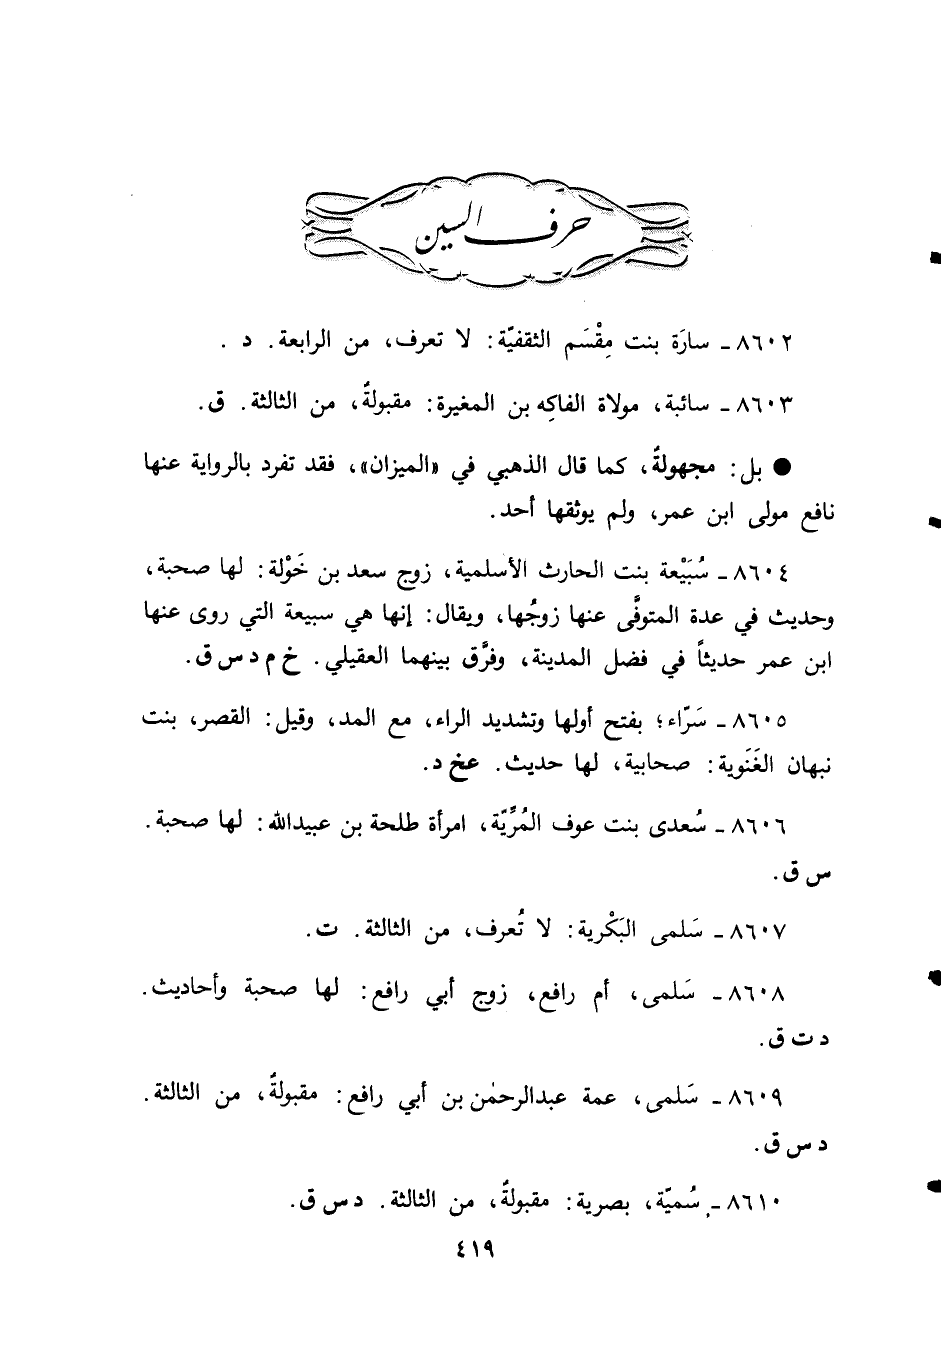 حرف السين
٨٦٠٢ ـ سارَة بنت مِقْسَم الثقفيّة: لا تعرف، من الرابعة. د .
٨٦٠٣ ـ سائبة، مولاة الفاكِه بن المغيرة: مقبولةٌ، من الثالثة. ق.
● بل: مجهولةٌ، كما قال الذهبي في «الميزان»، فقد تفرد بالرواية عنها
نافع مولى ابن عمر، ولم يوثقها أحد.
٨٦٠٤ ـ سُبَيْعة بنت الحارث الأسلمية، زوج سعد بن خَوْلة: لها صحبة،
وحديث في عدة المتوفَّى عنها زوجُها، ويقال: إنها هي سبيعة التي روى عنها
ابن عمر حديثاً في فضل المدينة، وفرَّق بينهما العقيلي. خ م د س ق.
٨٦٠٥ ـ سَرّاء؛ بفتح أولها وتشديد الراء، مع المد، وقيل: القصر، بنت
نبهان الغَنَوية: صحابية، لها حديث. عخ د.
٨٦٠٦ ـ سُعدى بنت عوف المُرِّيّة، امرأة طلحة بن عبيدالله: لها صحبة.
س ق.
٨٦٠٧ ـ سَلمى البَكْرية: لا تُعرف، من الثالثة. ت.
٨٦٠٨ ـ سَلمى، أم رافع، زوج أبي رافع: لها صحبة وأحاديث.
د ت ق.
٨٦٠٩ ـ سَلمى، عمة عبدالرحمٰن بن أبي رافع: مقبولةٌ، من الثالثة.
د س ق.
٨٦١٠ ـ سُميّة، بصرية: مقبولةٌ، من الثالثة. د س ق.
٤١٩